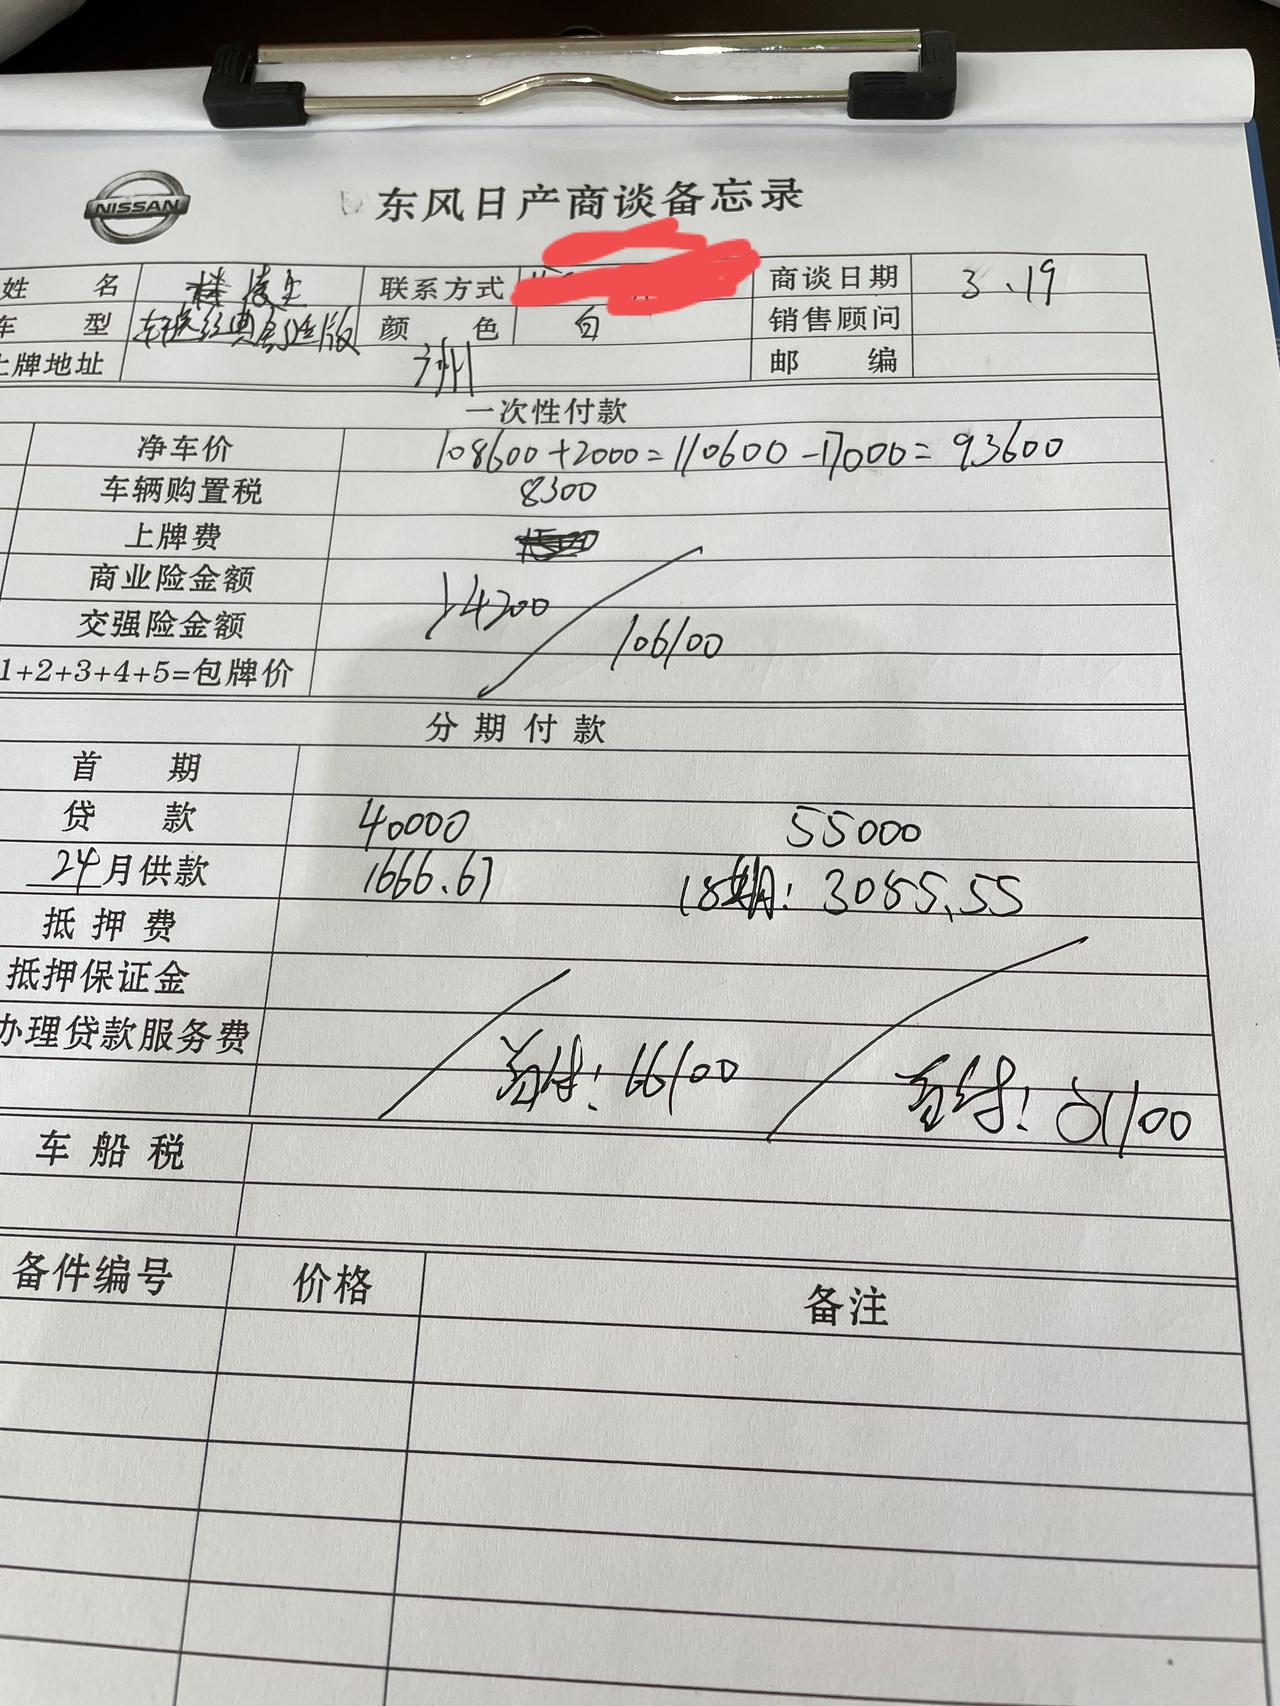 NISSAN
东风日产商谈备忘录
姓 名 联系方式 商谈日期 3.19
车 型 轩逸经典 版 颜 色 白 销售顾问
上牌地址 广州 邮 编
一次性付款
净车价 108600+2000=110600-17000=93600
车辆购置税 8300
上牌费
商业险金额 4200
交强险金额 106100
1+2+3+4+5=包牌价
分期付款
首 期
贷 款 40000 55000
24月供款 1666.67 18期:3085.55
抵押费
抵押保证金
办理贷款服务费
首付:66100 首付:51100
车船税
备件编号 价格 备注